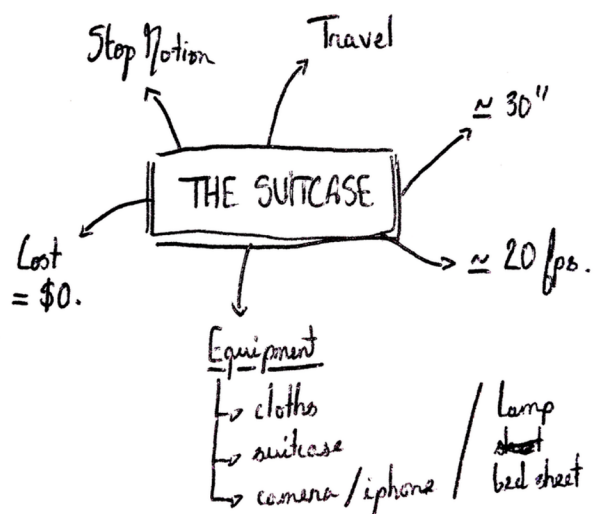 Stop Motion
Travel
≃ 30"
THE SUITCASE
Cost
= $0.
≃ 20 fps.
Equipment
cloths
suitcase
camera / iphone /
Lamp
bed sheet